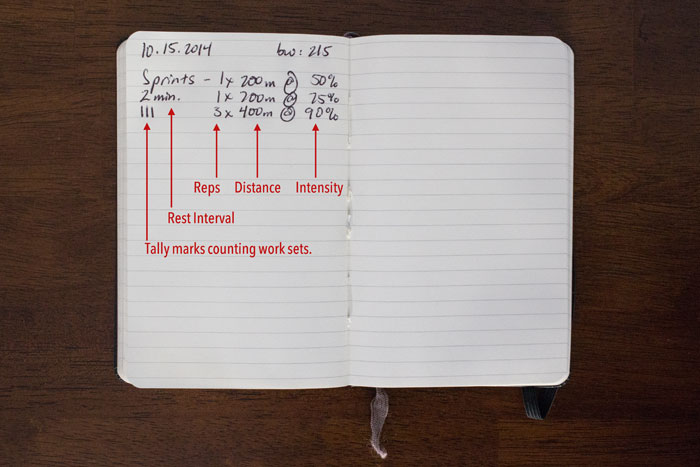 10.15.2014 bw: 215
Sprints - 1x 200m @ 50%
2 min. 1x 200m @ 75%
III 3x 400m @ 90%
Reps Distance Intensity
Rest Interval
Tally marks counting work sets.